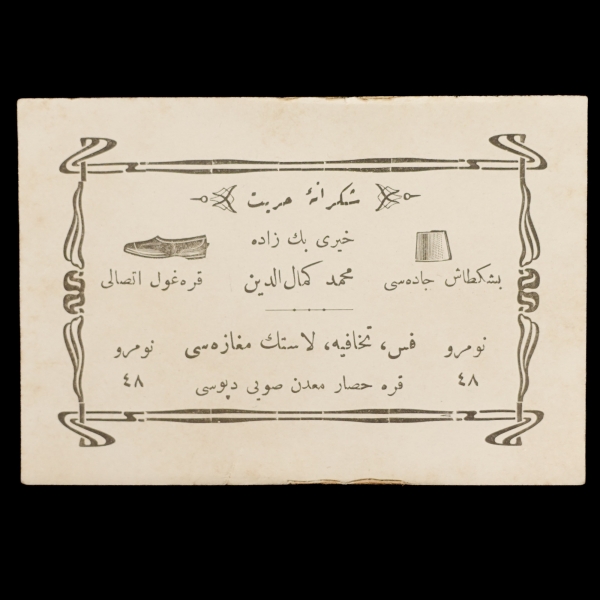 شكرانهٔ حريت
خيرى بك زاده
بشكطاش جاده‌سى
محمد كمال الدين
قره‌غول اتصالى
نومرو
فس، تحافيه، لاستك مغازه‌سى
نومرو
٤٨
قره حصار معدن صويى دپوسى
٤٨